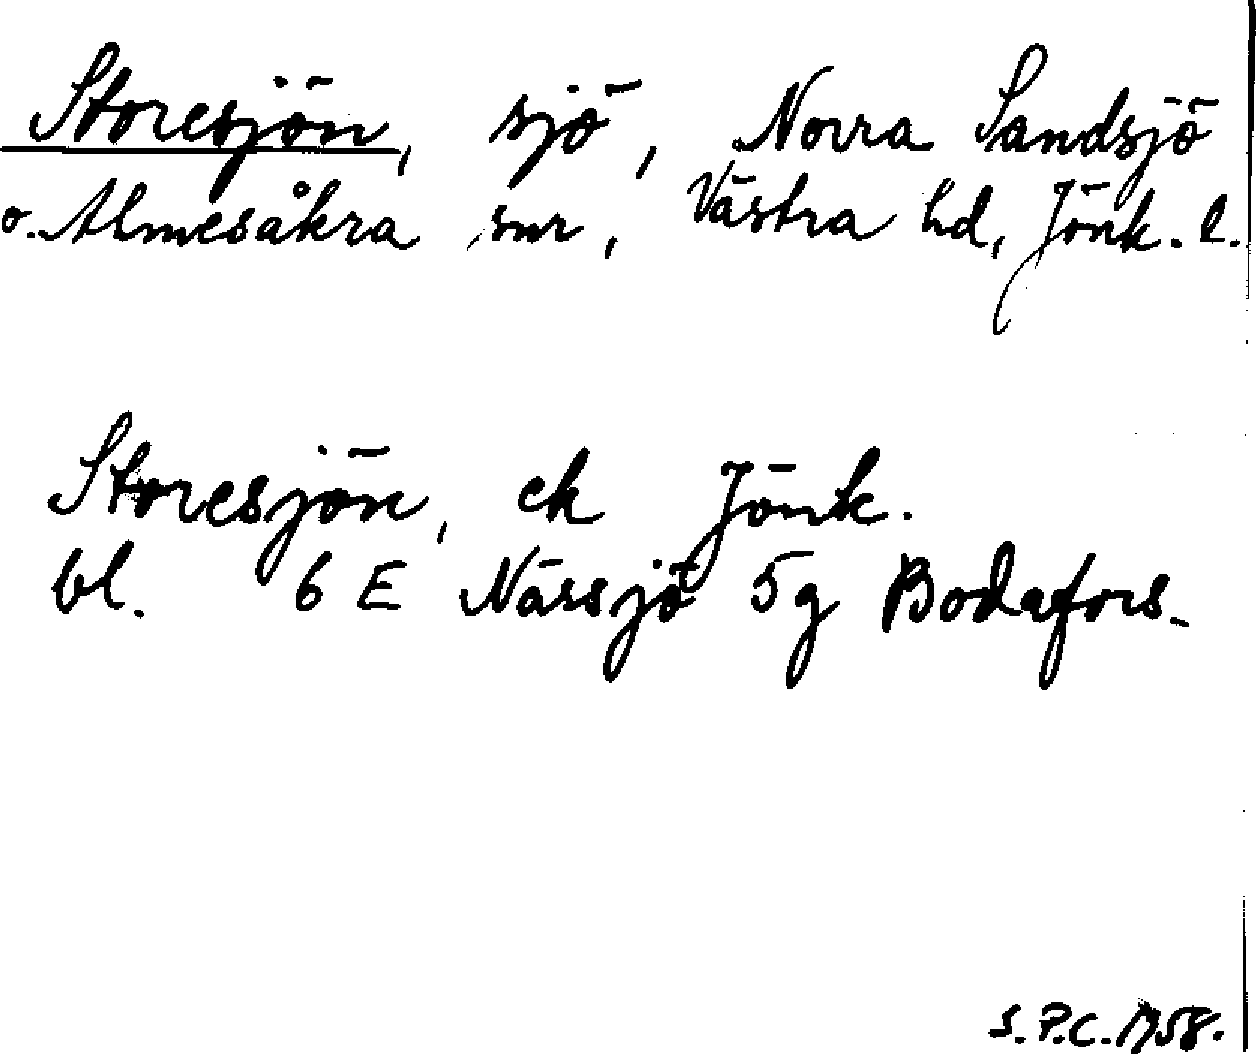 Storesjön, sjö, Norra Sandsjö
o. Almesåkra snr, Västra hd, Jönk. l.
Storesjön, ek Jönk.
bl. 6 E Nässjö 5g Bodafors.
S.P.C. 1958.